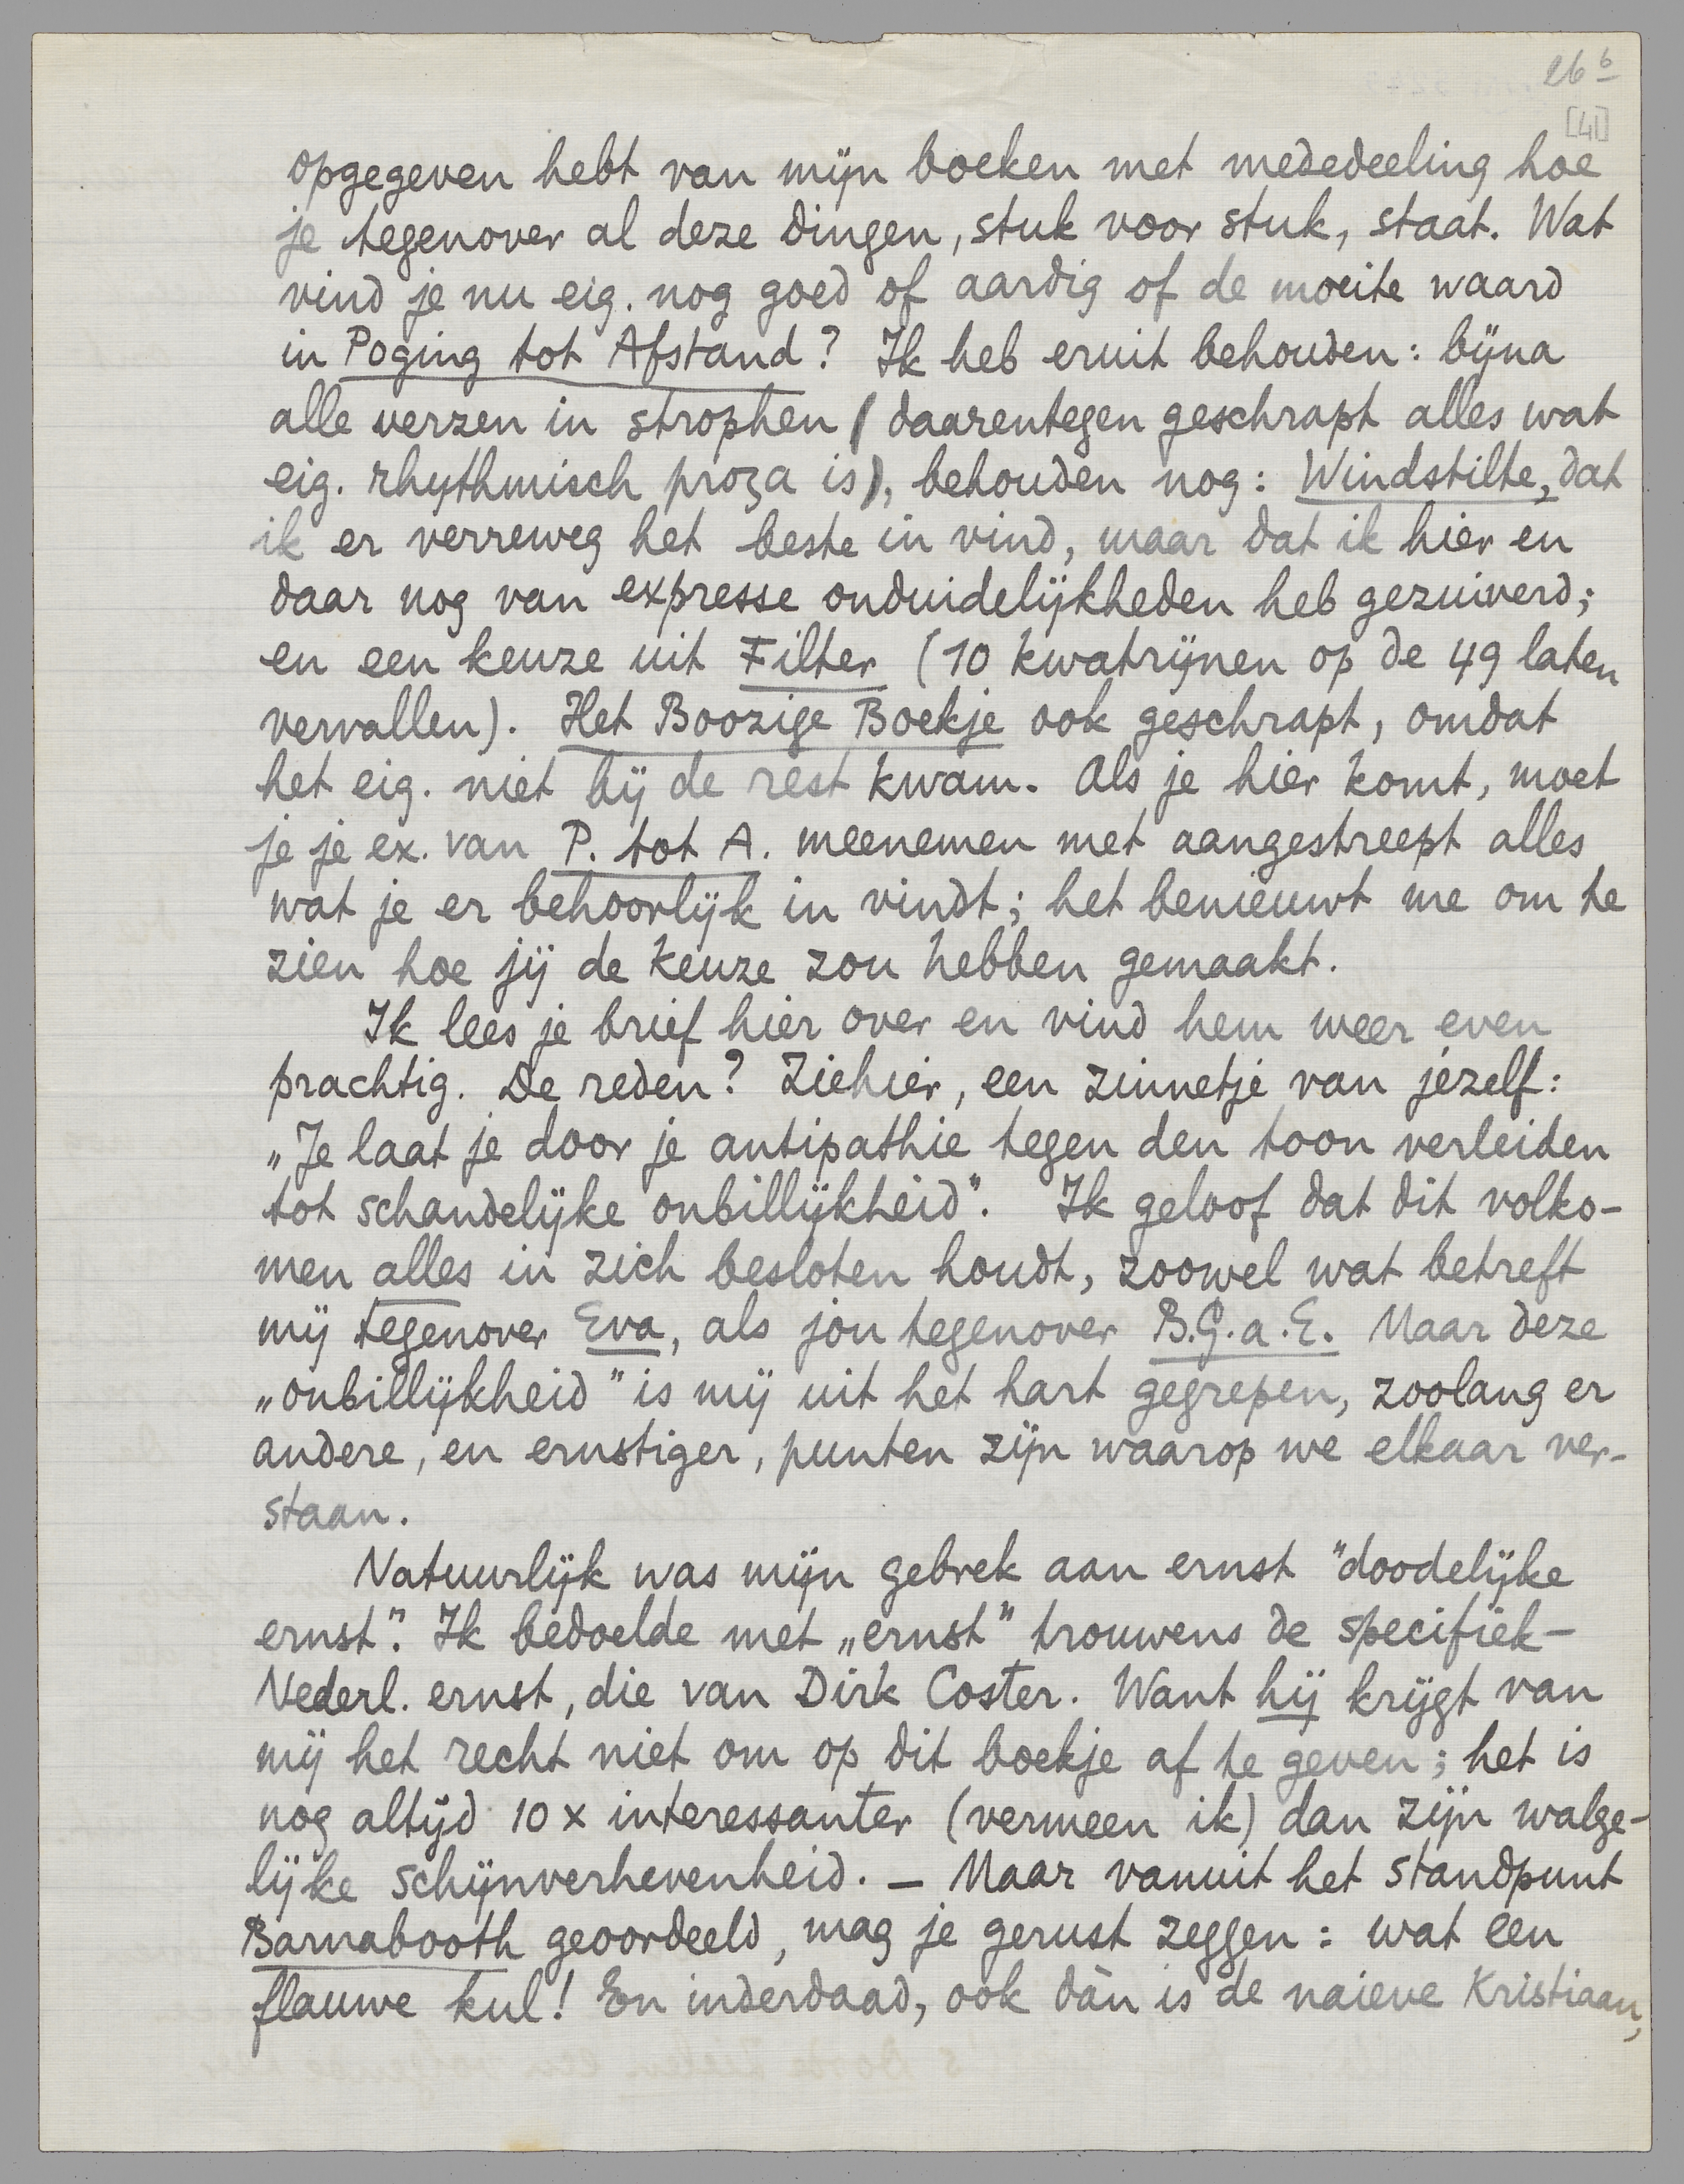 26 b
[41]
opgegeven hebt van mijn boeken met mededeeling hoe
je tegenover al deze dingen, stuk voor stuk, staat. Wat
vind je nu eig. nog goed of aardig of de moeite waard
in Poging tot Afstand? Ik heb eruit behouden: bijna
alle verzen in strophen (daarentegen geschrapt alles wat
eig. rhythmisch proza is), behouden nog: Windstilte, dat
ik er verreweg het beste in vind, maar dat ik hier en
daar nog van expresse onduidelijkheden heb gezuiverd;
en een keuze uit Filter (10 kwatrijnen op de 49 laten
vervallen). Het Boozige Boekje ook geschrapt, omdat
het eig. niet bij de rest kwam. Als je hier komt, moet
je je ex. van P. tot A. meenemen met aangestreept alles
wat je er behoorlijk in vindt; het benieuwt me om te
zien hoe jij de keuze zou hebben gemaakt.
Ik lees je brief hier over en vind hem weer even
prachtig. De reden? Ziehier, een zinnetje van jezelf:
„Je laat je door je antipathie tegen den toon verleiden
tot schandelijke onbillijkheid". Ik geloof dat dit volko-
men alles in zich besloten houdt, zoowel wat betreft
mij tegenover Eva, als jou tegenover B.G.a.E. Maar deze
„onbillijkheid" is mij uit het hart gegrepen, zoolang er
andere, en ernstiger, punten zijn waarop we elkaar ver-
staan.
Natuurlijk was mijn gebrek aan ernst "doodelijke
ernst". Ik bedoelde met „ernst" trouwens de specifiek-
Nederl. ernst, die van Dirk Coster. Want hij krijgt van
mij het recht niet om op dit boekje af te geven; het is
nog altijd 10 x interessanter (vermeen ik) dan zijn walge-
lijke schijnverhevenheid. — Maar vanuit het standpunt
Barnabooth geoordeeld, mag je gerust zeggen: wat een
flauwe kul! En inderdaad, ook dàn is de naieve Kristiaan,